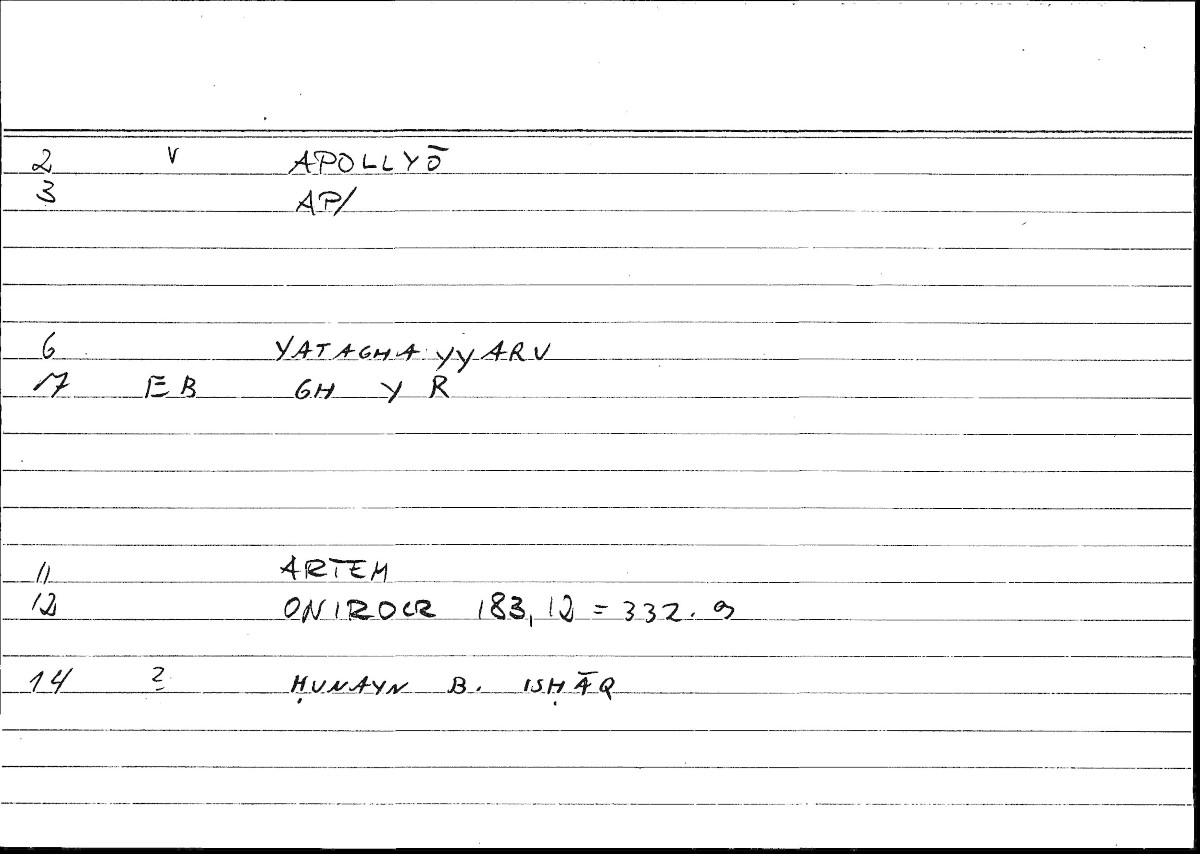 2 V APOLLYŌ
3 AP/
6 YATAGHAYYARU
17 EB GH Y R
11 ARTEM
12 ONIROCR 183,12 = 332.9
14 2 ḤUNAYN B. ISḤĀQ